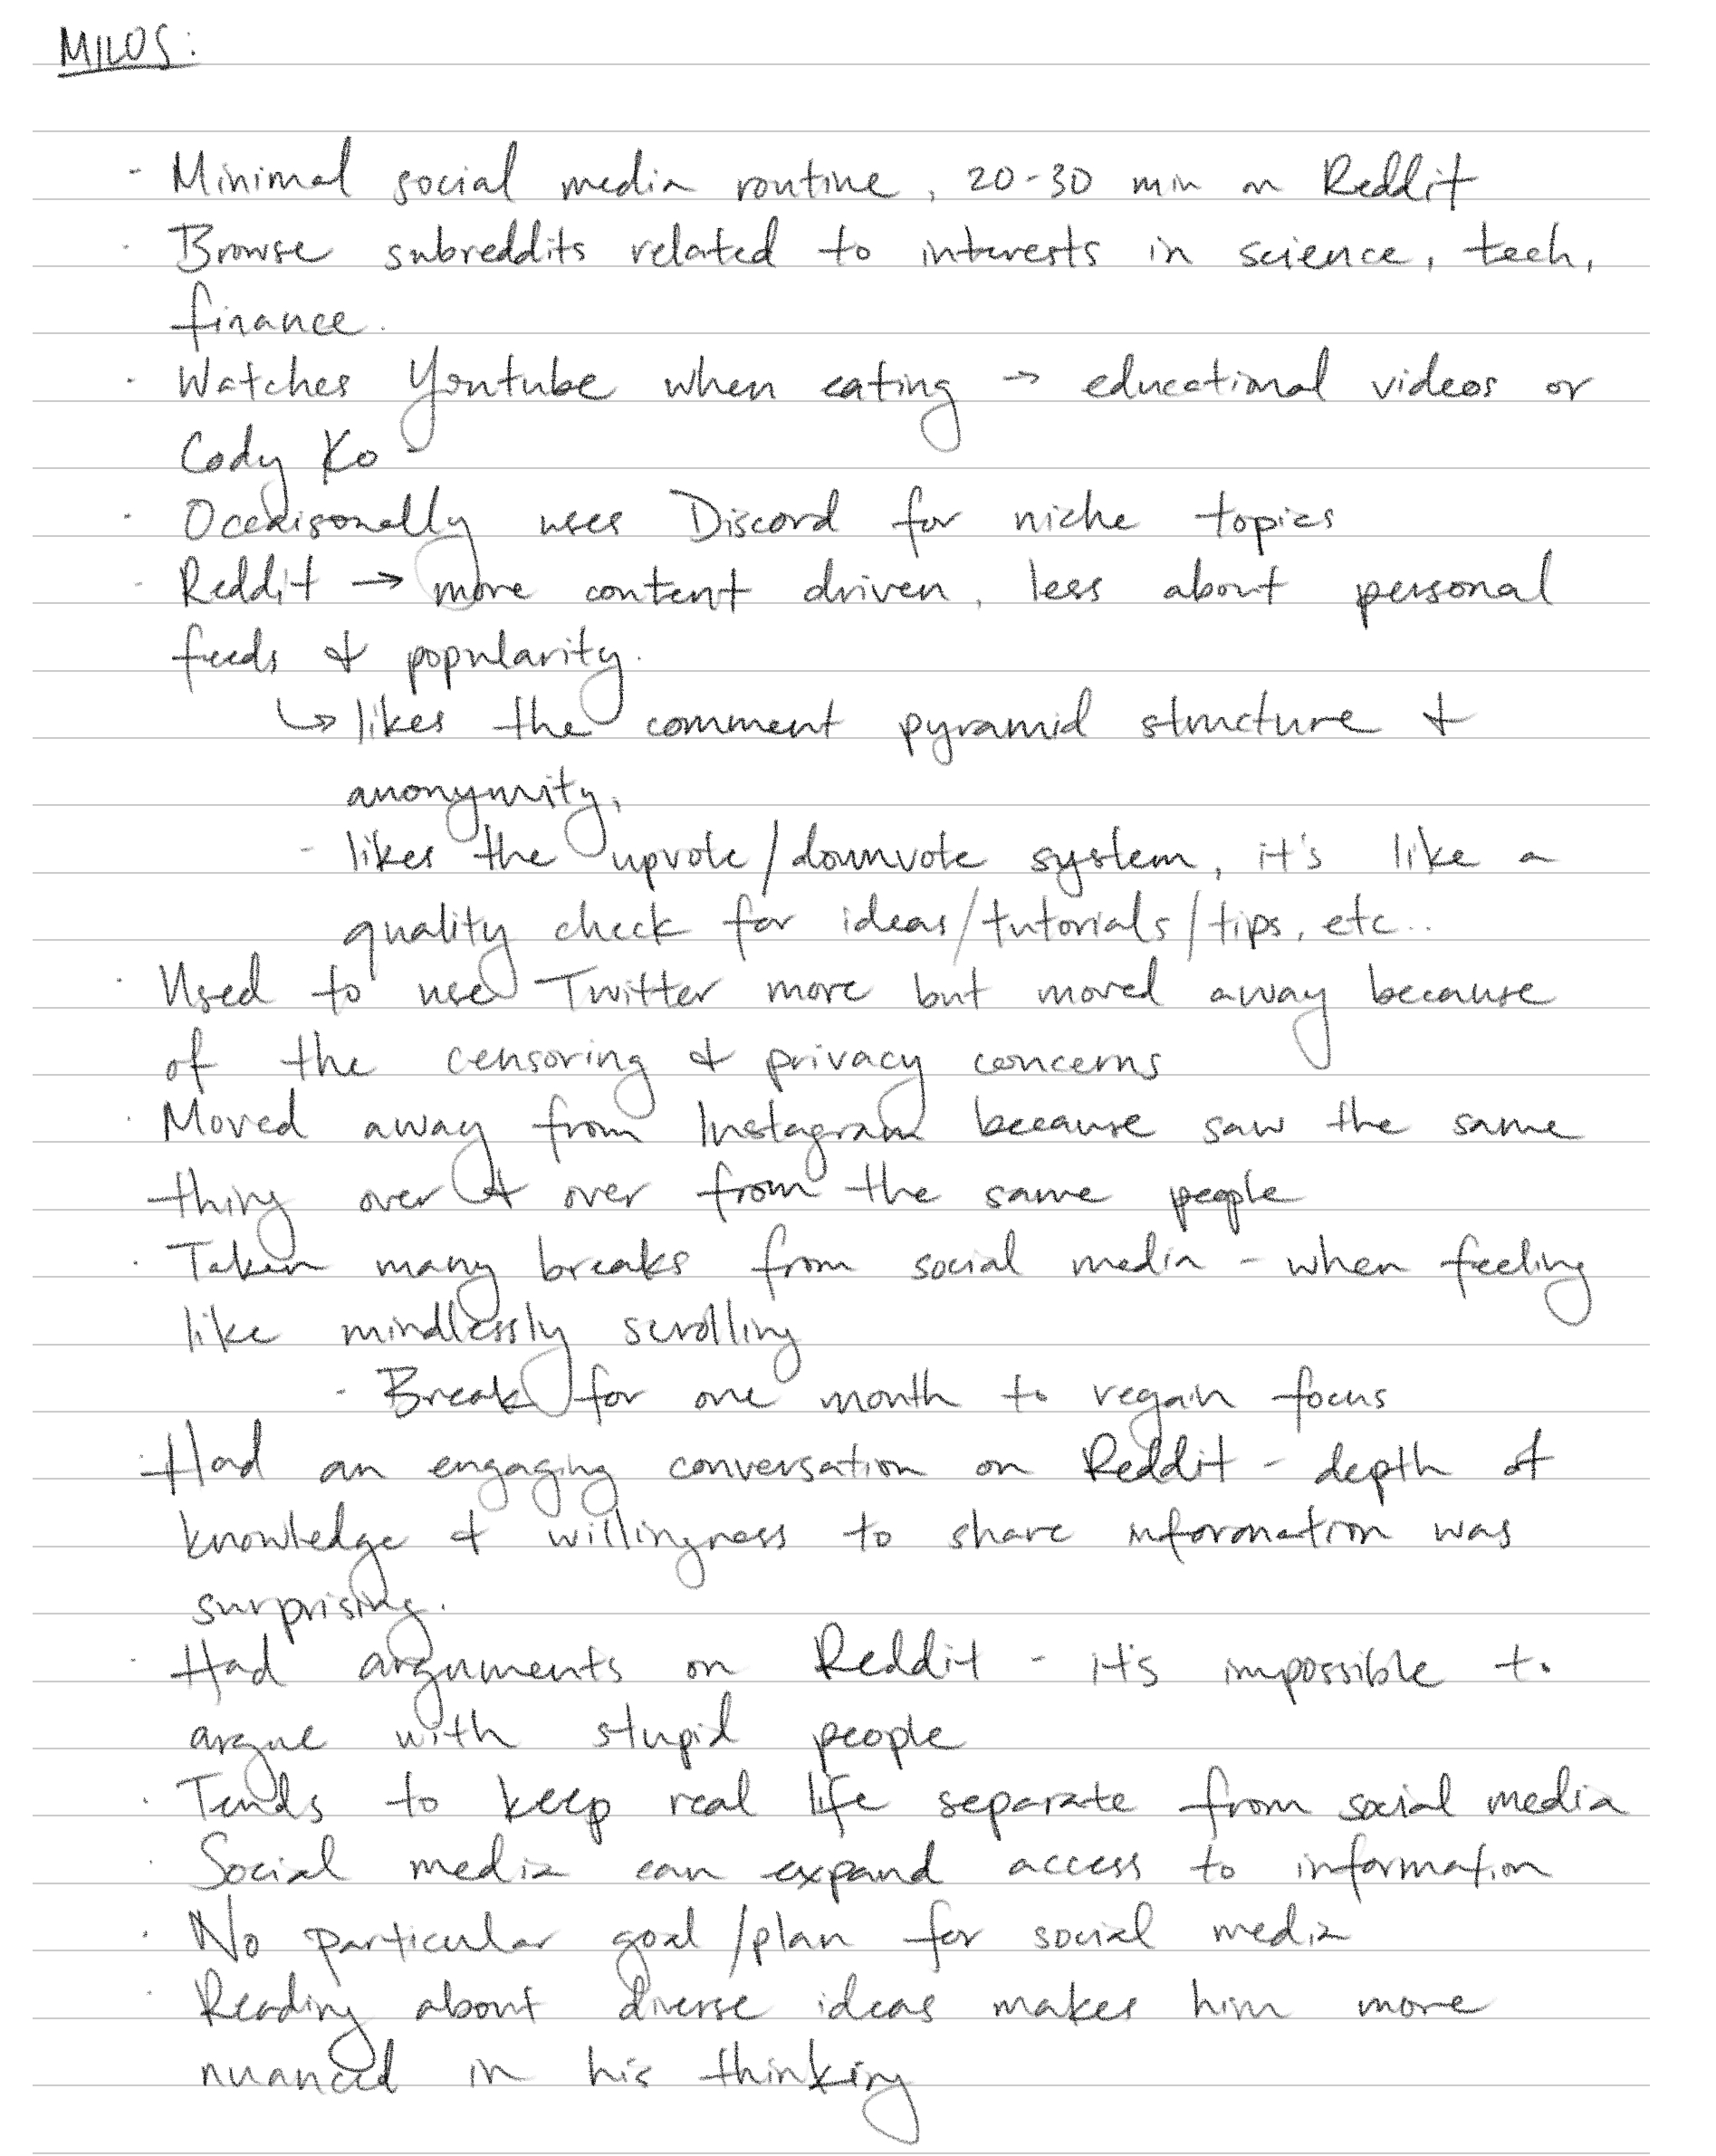 MILOS:
- Minimal social media routine, 20-30 min on Reddit
· Browse subreddits related to interests in science, tech,
finance.
· Watches Youtube when eating → educational videos or
Cody Ko
· Occaisonally uses Discord for niche topics
- Reddit → more content driven, less about personal
feeds & popularity.
↳ likes the comment pyramid structure &
anonymity,
- likes the upvote/downvote system, it's like a
quality check for ideas/tutorials/tips, etc..
· Used to use Twitter more but moved away because
of the censoring & privacy concerns
· Moved away from Instagram because saw the same
thing over & over from the same people
· Taken many breaks from social media - when feeling
like mindlessly scrolling
- Break for one month to regain focus
· Had an engaging conversation on Reddit - depth of
knowledge & willingness to share information was
surprising.
· Had arguments on Reddit - it's impossible to
argue with stupid people
· Tends to keep real life separate from social media
· Social media can expand access to information
· No particular goal/plan for social media
· Reading about diverse ideas makes him more
nuanced in his thinking